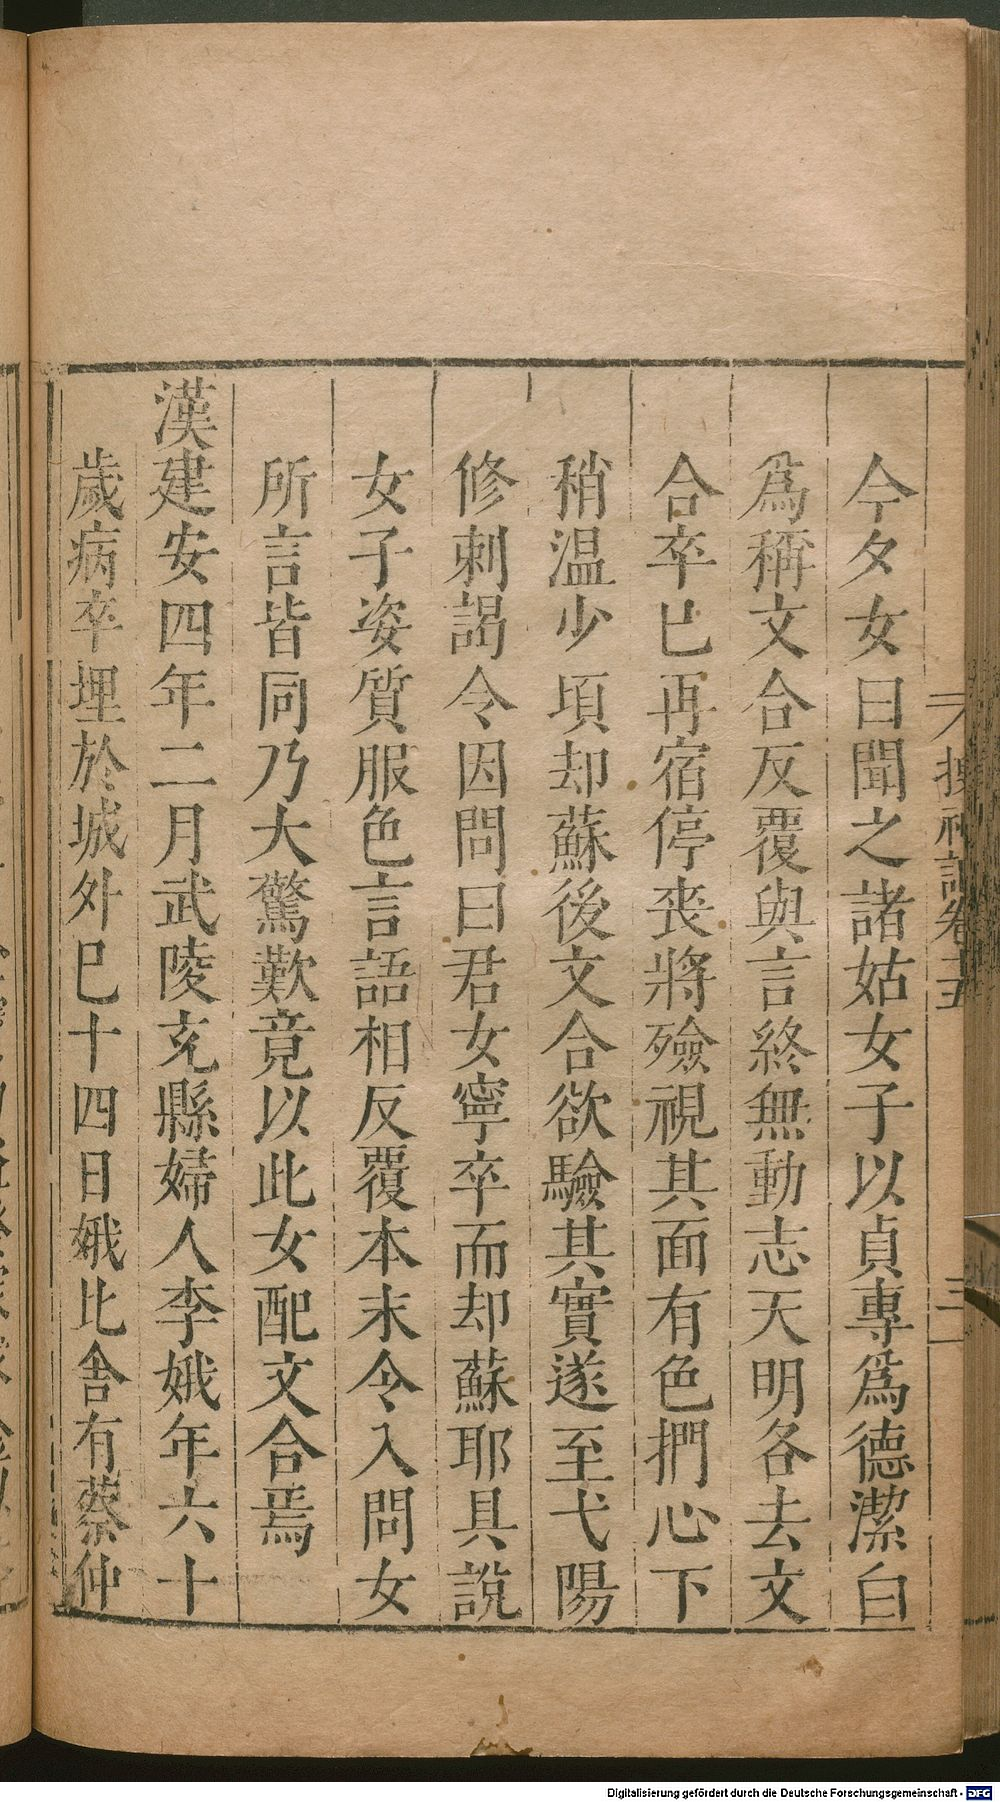 今夕女曰聞之諸姑女子以貞專爲德潔白
爲稱文合反覆與言終無動志天明各去文
合卒已再宿停喪將殮視其面有色捫心下
稍温少頃却蘇後文合欲驗其實遂至弋陽
修刺謁令因問曰君女寧卒而却蘇耶具說
女子姿質服色言語相反覆本末令入問女
所言皆同乃大驚歎竟以此女配文合焉
漢建安四年二月武陵充縣婦人李娥年六十
歲病卒埋於城外已十四日娥比舍有蔡仲
搜神記卷十五
三
Digitalisierung gefördert durch die Deutsche Forschungsgemeinschaft - DFG